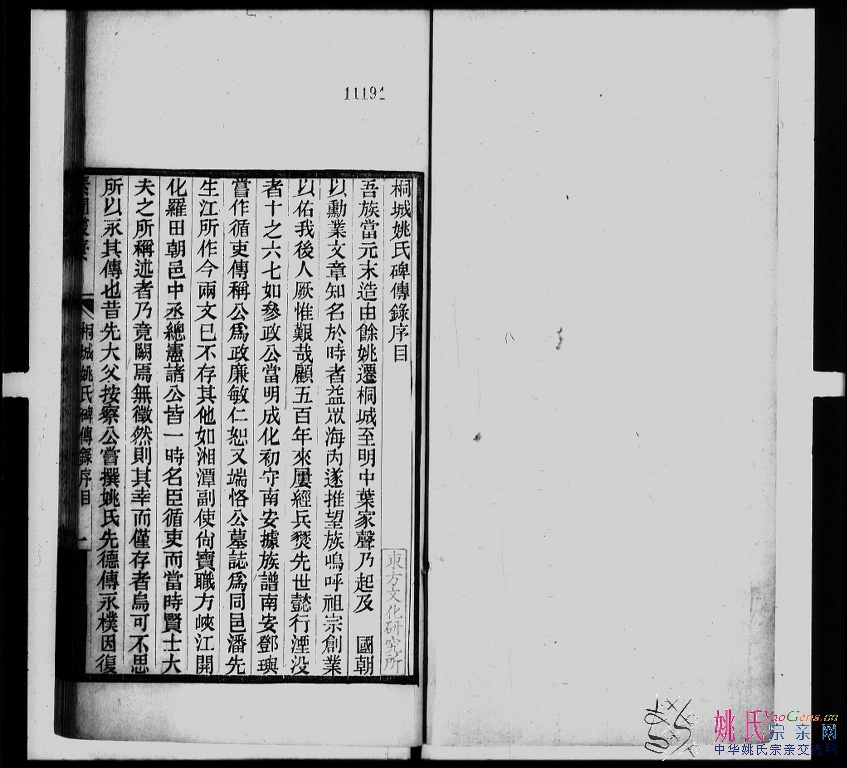 11191
桐城姚氏碑傳錄序目
吾族當元末造由餘姚遷桐城至明中葉家聲乃起及 國朝
以勳業文章知名於時者益眾海內遂推望族嗚呼祖宗創業
以佑我後人厥惟艱哉顧五百年來屢經兵燹先世懿行湮沒
者十之六七如參政公當明成化初守南安據族譜南安鄧璵
嘗作循吏傳稱公爲政廉敏仁恕又端恪公墓誌爲同邑潘先
生江所作今兩文已不存其他如湘潭副使尙寶職方峽江開
化羅田朝邑中丞總憲諸公皆一時名臣循吏而當時賢士大
夫之所稱述者乃竟闕焉無徵然則其幸而僅存者烏可不思
所以永其傳也昔先大父按察公嘗撰姚氏先德傳永樸因復
桐城姚氏碑傳錄序目 一
東方文化研究所
姚氏宗亲网
YaoGens.cn
中华姚氏宗亲交流网